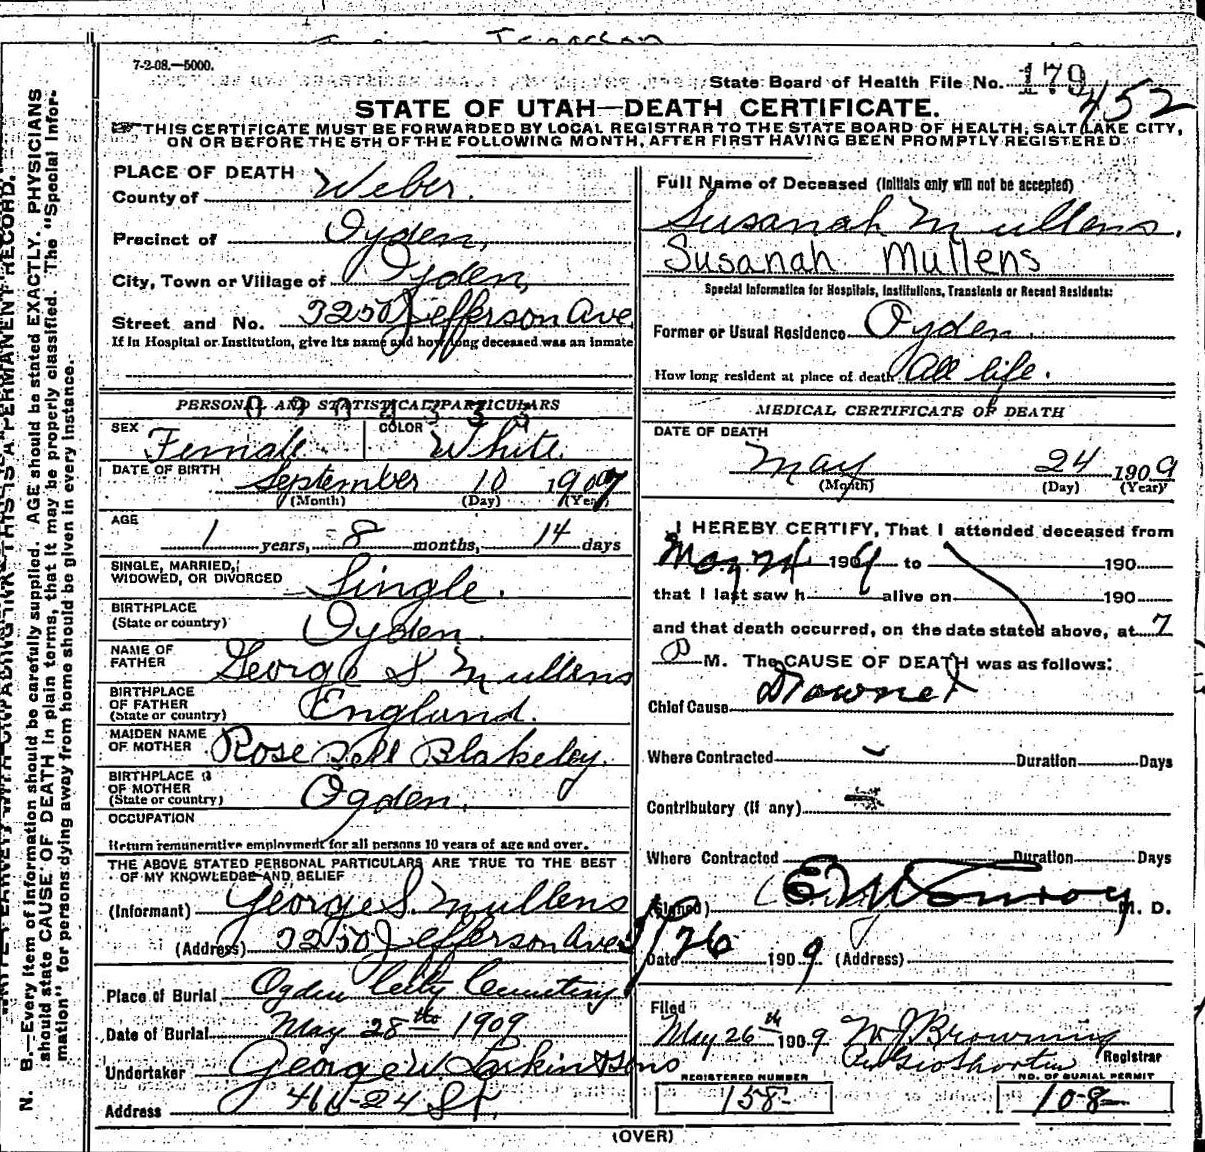 7-2-08.—5000.
State Board of Health File No. 179
452
STATE OF UTAH—DEATH CERTIFICATE.
THIS CERTIFICATE MUST BE FORWARDED BY LOCAL REGISTRAR TO THE STATE BOARD OF HEALTH, SALT LAKE CITY,
ON OR BEFORE THE 5TH OF THE FOLLOWING MONTH, AFTER FIRST HAVING BEEN PROMPTLY REGISTERED.
N. B.—Every item of information should be carefully supplied. AGE should be stated EXACTLY. PHYSICIANS
should state CAUSE OF DEATH in plain terms, that it may be properly classified. The "Special Infor-
mation" for persons dying away from home should be given in every instance.
PLACE OF DEATH
County of Weber.
Precinct of Ogden,
City, Town or Village of Ogden,
Street and No. 3250 Jefferson Ave
If in Hospital or Institution, give its name and how long deceased was an inmate
PERSONAL AND STATISTICAL PARTICULARS
SEX Female COLOR White.
DATE OF BIRTH September 10 1907
(Month) (Day) (Year)
AGE
1 years, 8 months, 14 days
SINGLE, MARRIED,
WIDOWED, OR DIVORCED Single.
BIRTHPLACE
(State or country) Ogden.
NAME OF
FATHER George S. Mullens
BIRTHPLACE
OF FATHER
(State or country) England.
MAIDEN NAME
OF MOTHER Rose Bell Blakeley.
BIRTHPLACE
OF MOTHER
(State or country) Ogden.
OCCUPATION
Return remunerative employment for all persons 10 years of age and over.
THE ABOVE STATED PERSONAL PARTICULARS ARE TRUE TO THE BEST
OF MY KNOWLEDGE AND BELIEF
(Informant) George S. Mullens
(Address) 3250 Jefferson Ave
Place of Burial Ogden City Cemetery
Date of Burial May 28th 1909
Undertaker George W Larkin & Sons
Address 24 St.
Full Name of Deceased (Initials only will not be accepted)
Susanah Mullens.
Susanah Mullens
Special Information for Hospitals, Institutions, Transients or Recent Residents:
Former or Usual Residence Ogden.
How long resident at place of death All life.
MEDICAL CERTIFICATE OF DEATH
DATE OF DEATH
May 24 1909
(Month) (Day) (Year)
I HEREBY CERTIFY, That I attended deceased from
May 24 1909 to 190
that I last saw h alive on 190
and that death occurred, on the date stated above, at 7
P M. The CAUSE OF DEATH was as follows:
Chief Cause Drowned
Where Contracted Duration Days
Contributory (if any)
Where Contracted Duration Days
(Signed) M. D.
Date 5/26 1909 (Address)
Filed
May 26th 1909 W J Browning
Registrar
REGISTERED NUMBER
158
NO. OF BURIAL PERMIT
108
(OVER)